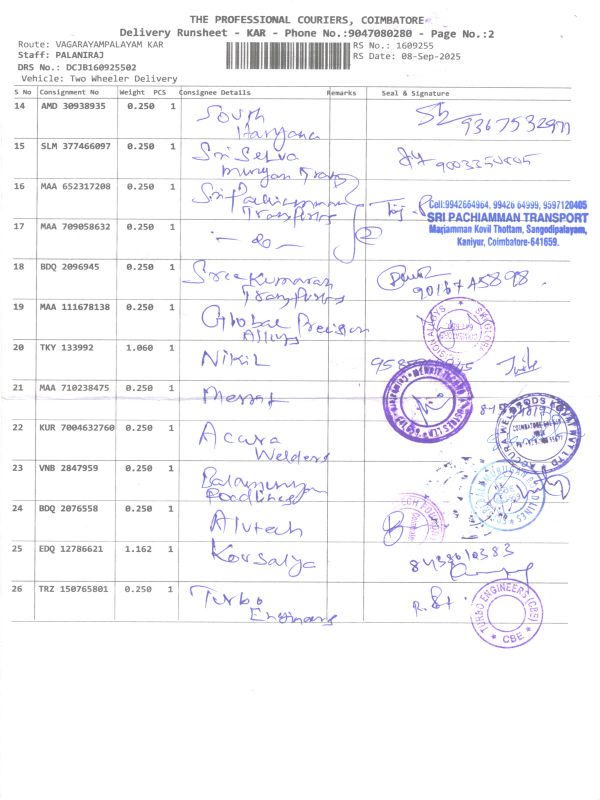 THE PROFESSIONAL COURIERS, COIMBATORE
Delivery Runsheet - KAR - Phone No.:9047080280 - Page No.:2
Route: VAGARAYAMPALAYAM KAR
RS No.: 1609255
Staff: PALANIRAJ
RS Date: 08-Sep-2025
DRS No.: DCJB160925502
Vehicle: Two Wheeler Delivery
S No Consignment No Weight PCS Consignee Details Remarks Seal & Signature
14 AMD 30938935 0.250 1 South
Haryana
15 SLM 377466097 0.250 1 Sri Selva
Murugan Trans
16 MAA 652317208 0.250 1 Sri Pachiamman
Transports
Cell:9942664964, 99426 64999, 9597120405
SRI PACHIAMMAN TRANSPORT
Mariamman Kovil Thottam, Sangodipalayam,
Kaniyur, Coimbatore-641659.
17 MAA 709058632 0.250 1 - do -
18 BDQ 2096945 0.250 1 Sree Kumaran
Transports
19 MAA 111678138 0.250 1 Global Precision
Alloys
20 TKY 133992 1.060 1 Nikil
21 MAA 710238475 0.250 1
22 KUR 7004632760 0.250 1 Accura
Welders
ACCURA WELDRODS KOVAI PVT LTD
23 VNB 2847959 0.250 1 Balamurugan
Roadlines
24 BDQ 2076558 0.250 1 Alutech
25 EDQ 12786621 1.162 1 Kousalya
8438610383
26 TRZ 150765801 0.250 1 Turbo
Engineers
TURBO ENGINEERS (CBE)
CBE